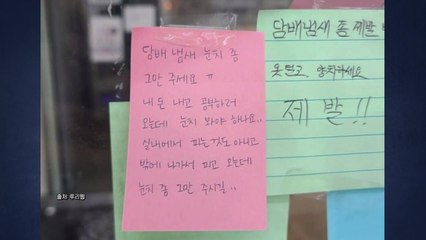 담배 냄새 눈치 좀
그만 주세요 ㅠ
내 돈 내고 공부하러
오는데 눈치 봐야 하나요..
실내에서 피는것도 아니고
밖에 나가서 피고 오는데
눈치 좀 그만 주시길..
담배냄새 좀 제발
옷 털고 양치하세요
제발!!
출처: 루리웹